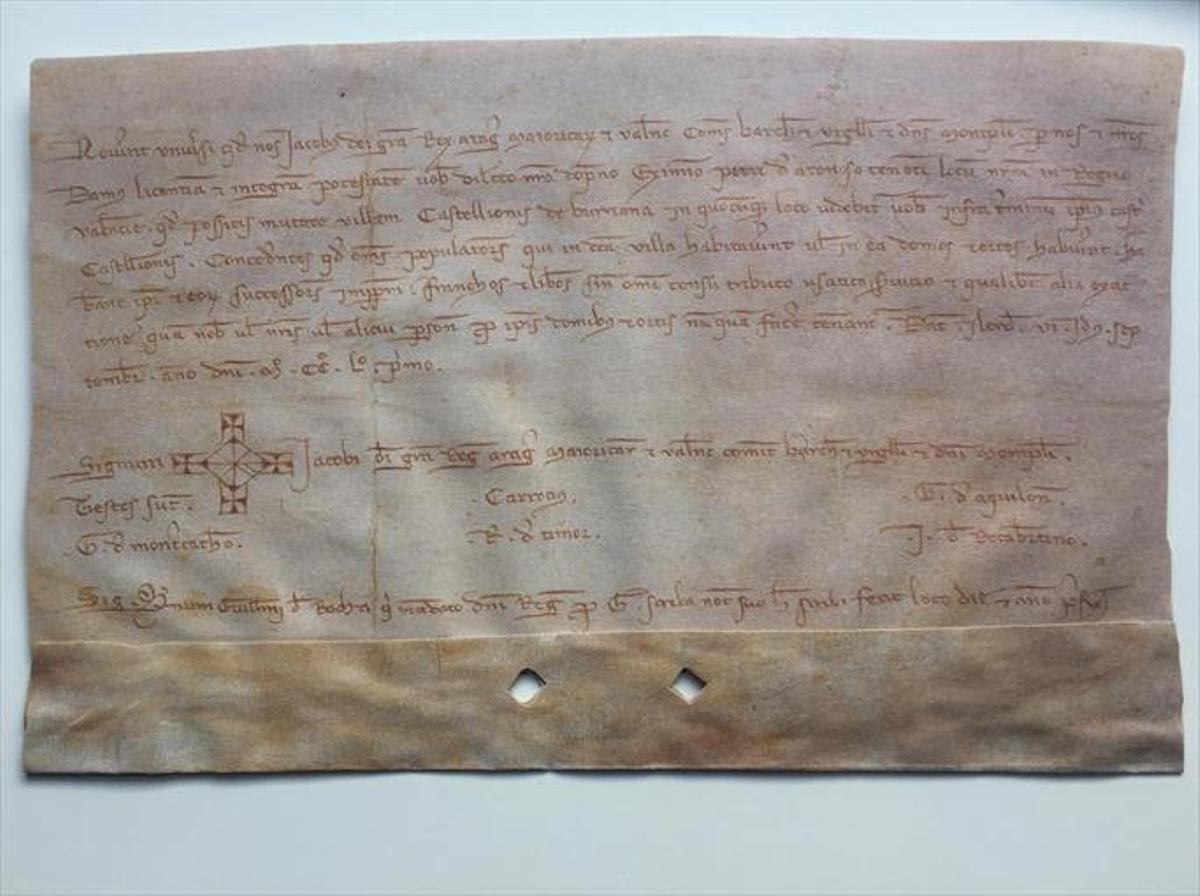 Noverint universi qd nos Jacobus dei gra Rex arag maioricar & valenc Coms barch & urgelli & dns montispli. p nos & nros
Damus licentia & integra potestate vob dilcto nro Eximino petri d arenoso teneti locu nrm in Regno
valencie. qd possitis mutare villam Castellionis de burriana in quocuqz loco videbit vob infra terminu ipius castri
Castellionis. Concedentes qd oms populatores qui in dca villa habitaverint vl in ea domos & ortos habuerint. ha
beant ipi & eor successores imppm. franchos & liberos sine omi censu tributo usatico servicio & qualibet alia exac
tione qua nob vl nris vl alicui persone p ipis domibus & ortis nuqua facere teneant. Dat Ilerd. vi. Idus sep
tembr. anno dni. mº. ccº. Lº. primo.
Signum Jacobi di gra Reg arag maioricar & valenc comit barch & urgelli & dni montispli.
Testes sut. Carrocius. G. d aquilon.
G. d montecatho. R. d timor. J. d Rocabtino.
Sig num Guillmi d Rocha q mandato dni Reg p G. scriba not suo h scribi fecit loco die & anno pfixis